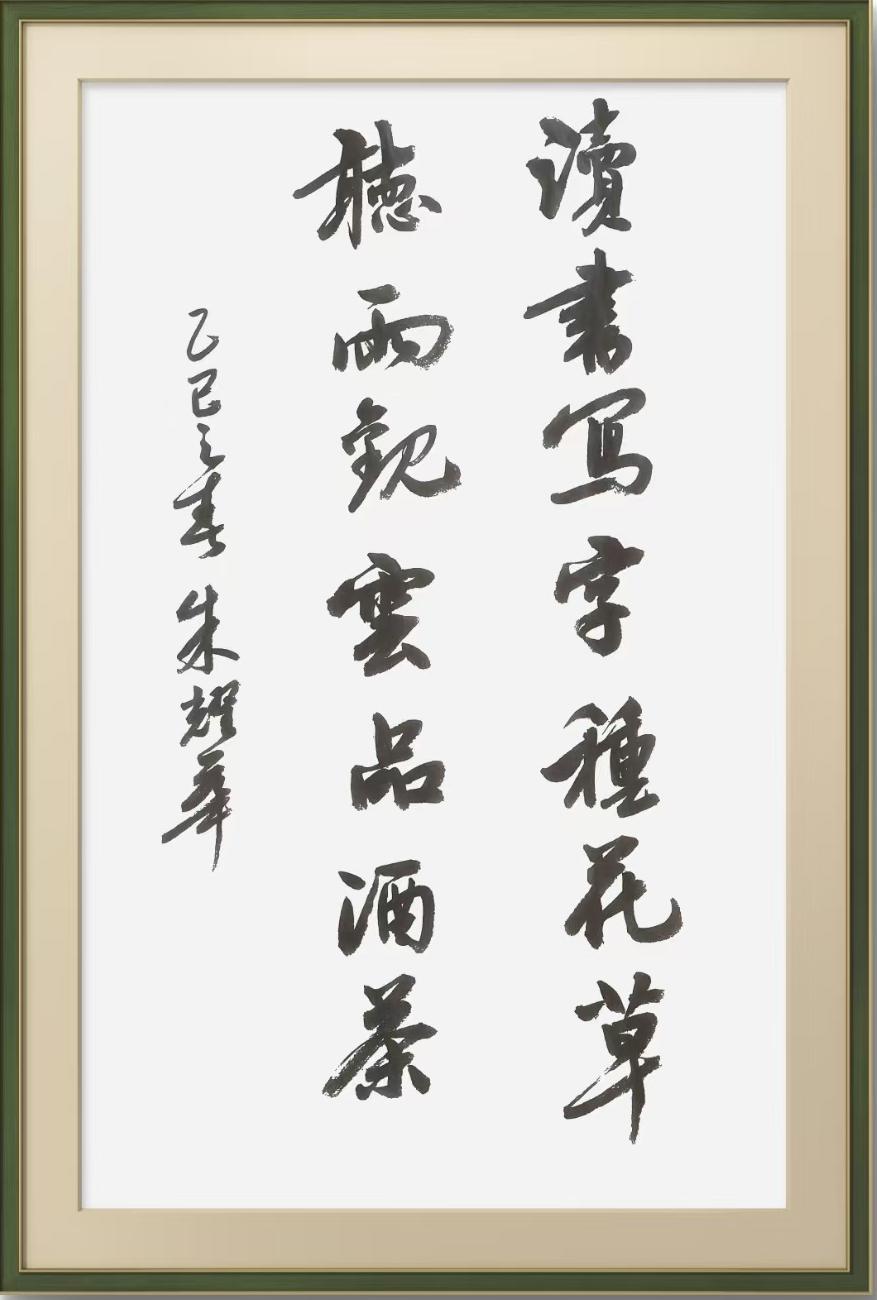 讀書写字種花草
聽雨觀雲品酒茶
乙巳之春 朱耀華